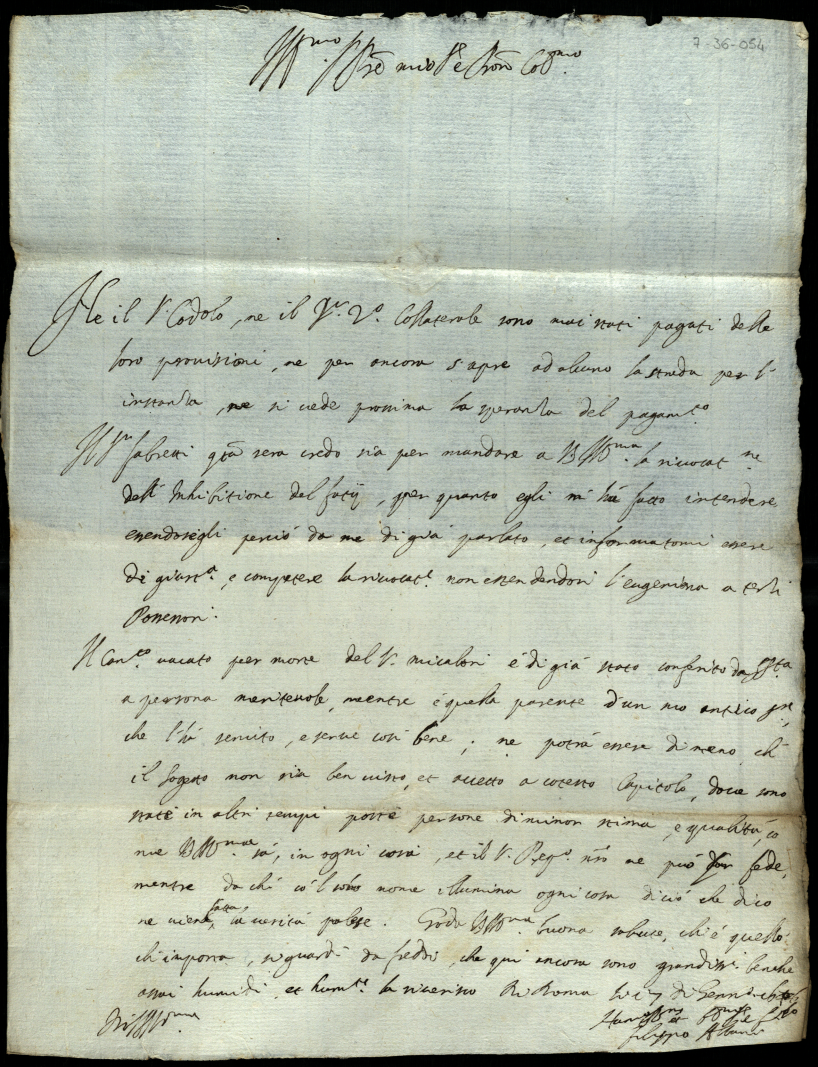 7-36-054
Ill.mo Sig.re mio Sig.re e Pron Col.mo
Ne il S. Codolo, ne il Sig.r 2.o Collaterale sono mai stati pagati delle
loro provisioni, ne per ancora s'apre ad alcuno la strada per l'
instanza, ne si vede prossima la speranza del pagam.to
Il Sig.r Fabretti q.ta sera credo sia per mandare a V.S. Ill.ma la rivocat.ne
dell'Inhibitione del, per quanto egli mi hà fatto intendere
essendosegli perciò da me di già parlato, et informatomi essere
di giust.a, e competere la rivocat.e non estendendosi l'eugeniana a terzi
Possessori.
Il Can.to vacato per morte del S. micalori é di già stato conferito da
a persona meritevole, mentre é quella parente d'un suo antico
che l'hà servito, e serve così bene; ne potrà essere di meno ch
il sogetto non sia ben visto, et accetto a cotesto Capitolo, dove sono
state in altri tempi poste persone di minor stima, e qualità, co
me V.S. Ill.ma sà, in ogni cosa, et il S. n.ro ne può far fede,
mentre da chì co'l nome illumina ogni cosa di ciò che dico
ne viene fatta la verità palese. Goda V.S. Ill.ma buona salute, ch'é quello
ch'importa, si guardi da freddi, che qui ancora sono grandiss.i benche
assai humidi, et hum.te la riverisco Di Roma li 17 di Genn.o
V.S. Ill.ma
Filippo Albani